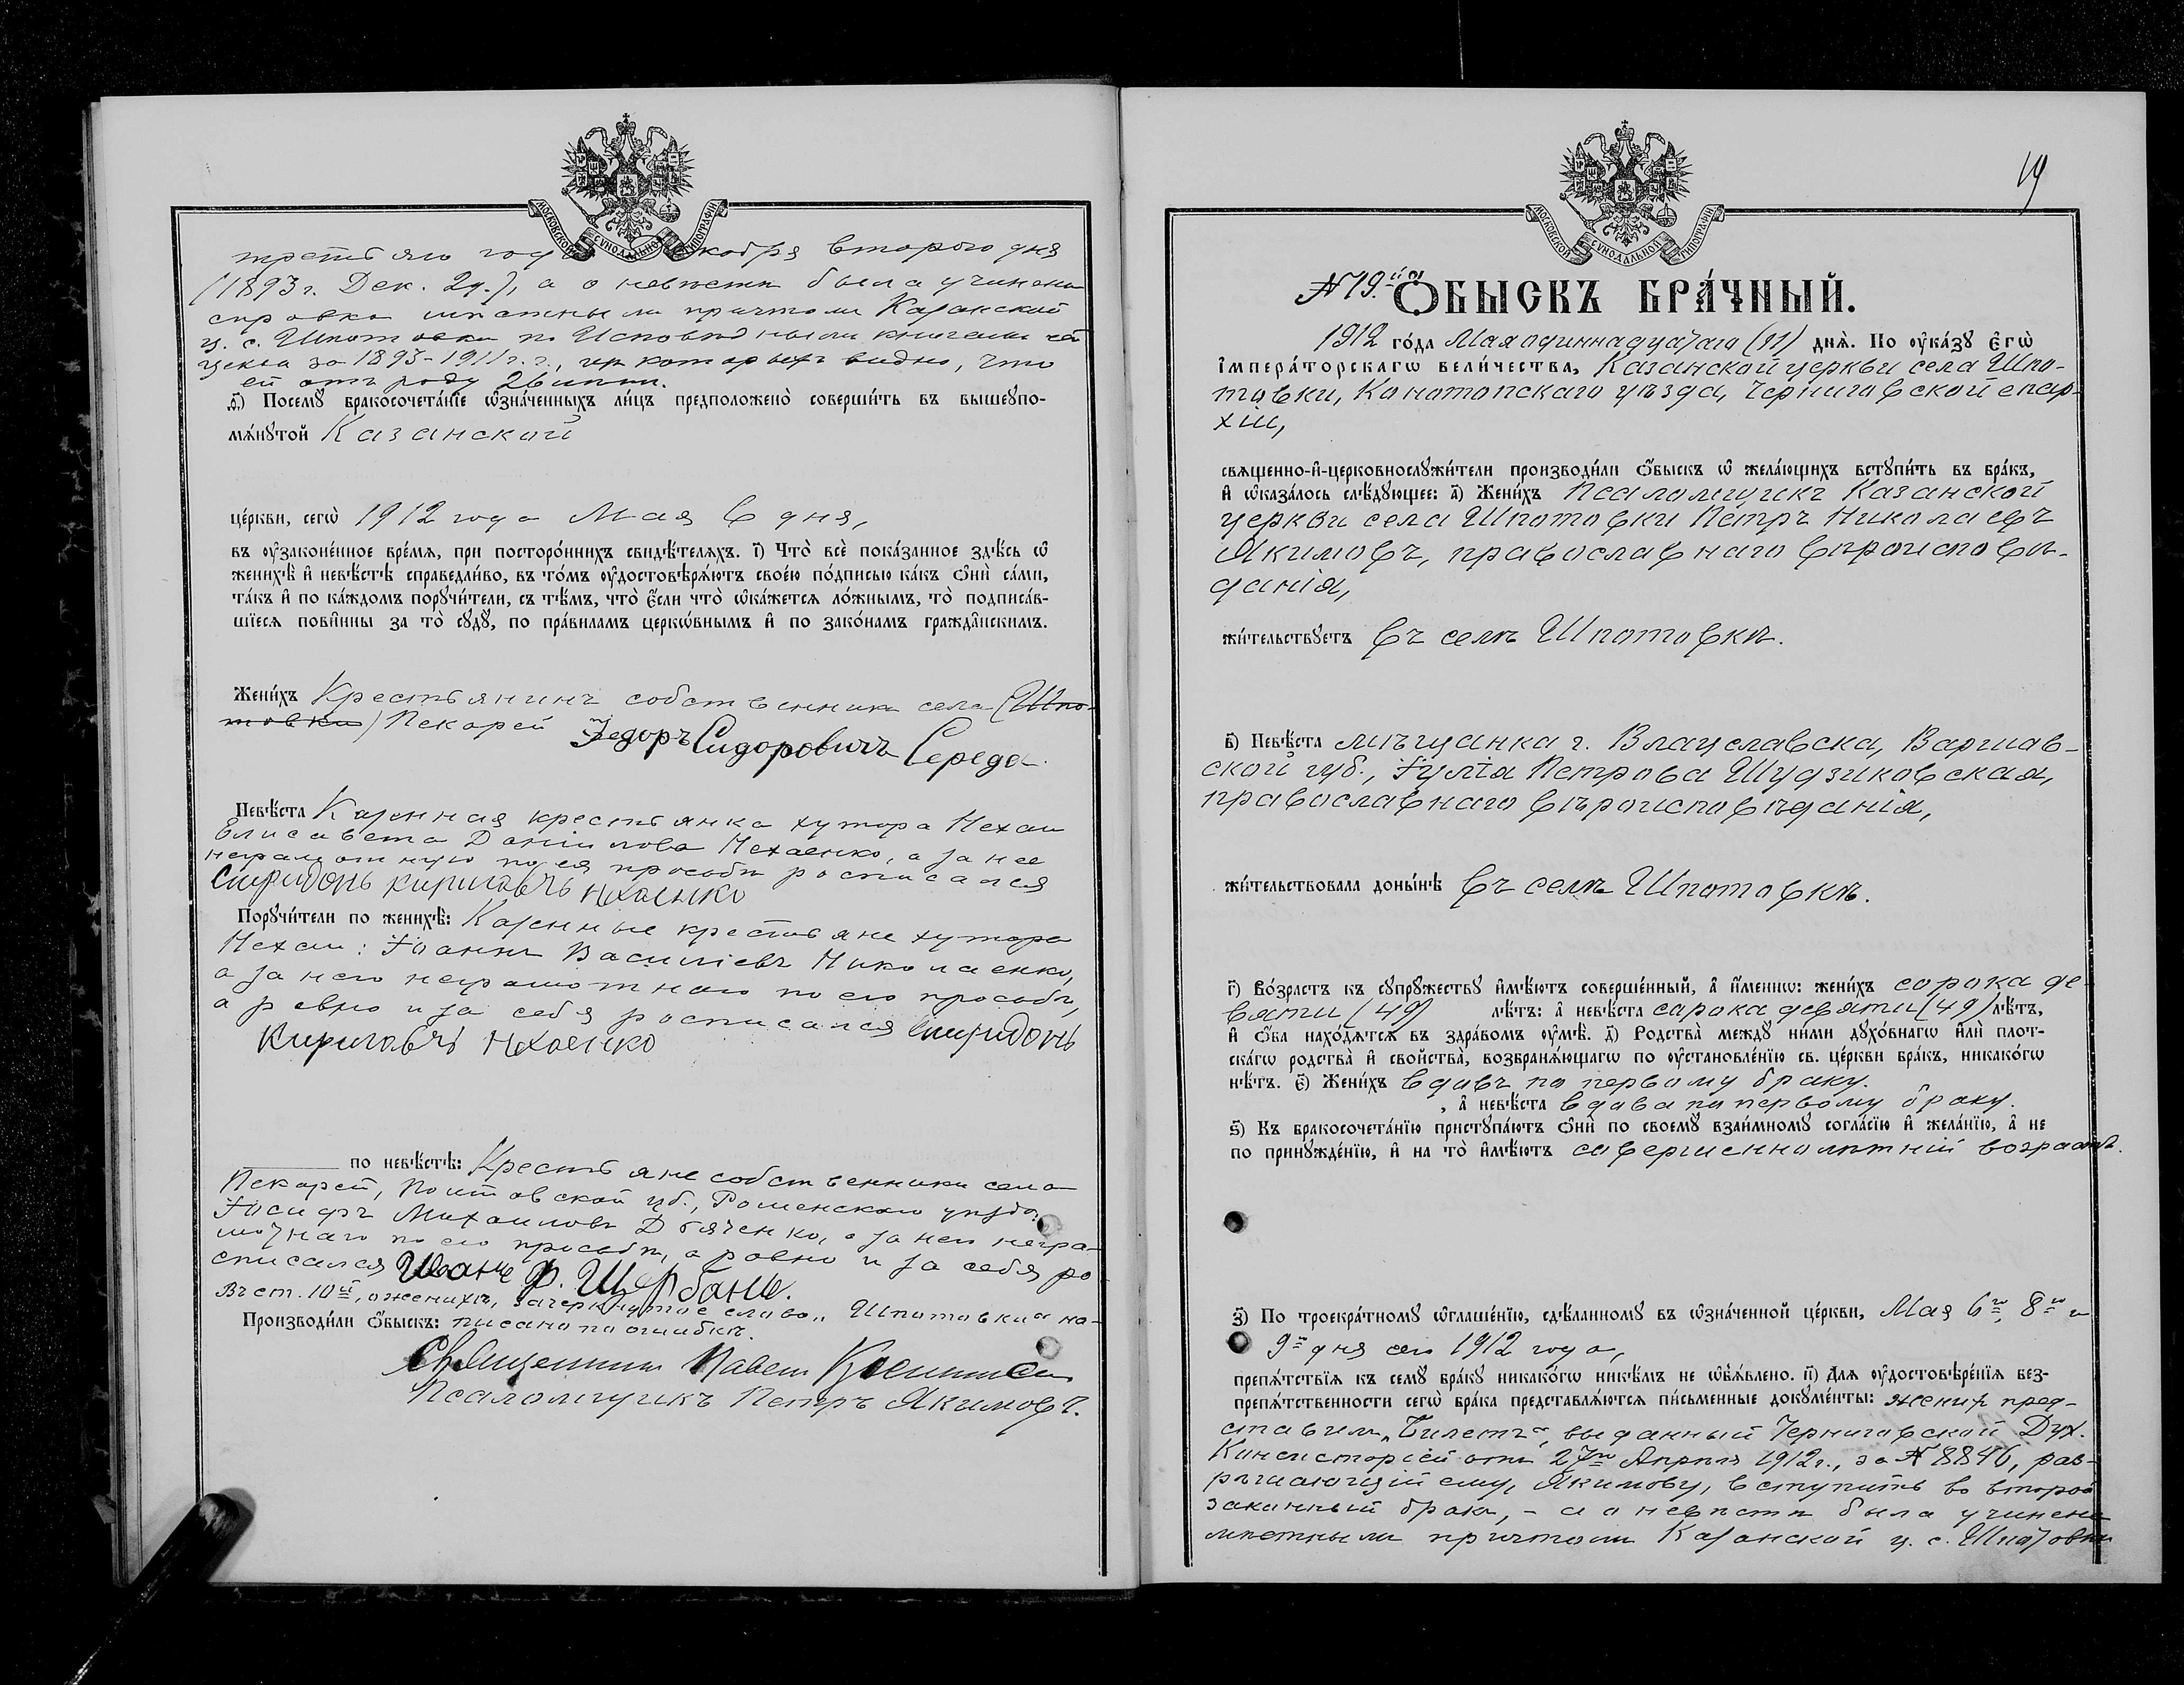 МОСКОВСКОЙ СѴНОДАЛЬНОЙ ТИПОГРАФІИ
третьяго года Декабря второго дня
(1893 г. Дек. 2 д.), а о невѣсте была учинена
справка мѣстнымъ причтомъ Казанской
ц. с. Шпотовки по Исповѣднымъ книгамъ сей
церкви за 1893-1911 г.г., из которыхъ видно, что
ей отъ роду 26 лѣтъ.
Ѳ) Посемꙋ бракосочета́нїе ѡ҆зна́ченныхъ ли́цъ предположено̀ соверши́ть въ вышеꙋпо-
мѧ́нꙋтой Казанской
це́ркви, сегѡ̀ 1912 года Мая 6 дня,
въ ᲂу҆законе́нное вре́мѧ, при посторо́ннихъ свидѣ́телѧхъ. і) Что̀ всѐ пока́занное здѣ́сь ѡ҆
женихѣ̀ и҆ невѣ́стѣ справедли́во, въ то́мъ ᲂу҆достовѣрѧ́ютъ свое́ю по́дписью ка́къ ѻ҆нѝ са́ми,
та́къ и҆ по ка́ждомъ порꙋчи́тели, съ тѣ́мъ, что̀ є҆́сли что̀ ѡ҆ка́жетсѧ ло́жнымъ, то̀ подписа́в-
шїесѧ пови́нны за то̀ сꙋдꙋ̀, по пра́виламъ церкѡ́внымъ и҆ по зако́намъ гражда́нскимъ.
Жени́хъ Крестьянинъ собственникъ села (Шпо-
товки) Пекарей Федоръ Сидоровичъ Середа
Невѣ́ста Казенная крестьянка хутора Нехаи
Елисавета Даніилова Нехаенко, а за нее
неграмотную по ея просьбѣ росписался
Спиридонъ Кириловичъ Нхаенко
Порꙋчи́тели по женихѣ̀: Казенные крестьяне хутора
Нехаи: Іоаннъ Василіевъ Николаенко,
а за него неграмотнаго по его просьбѣ,
а ровно и за себя росписался Спиридонъ
Кириловичъ Нхаенко
по невѣ́стѣ: Крестьяне собственники села
Пекарей, Полтавской губ., Роменскаго уѣзда
Іосифъ Михаиловъ Дьяченко, а за него негра-
мотнаго по его просьбѣ, а ровно и за себя ро-
списался Иванъ Ф. Щербань.
Въ ст. 10й, о женихѣ, зачеркнутое слово „Шпотовки“ на-
Производи́ли ѻ҆́быскъ: писано по ошибкѣ.
Священникъ Павелъ
Псаломщикъ Петръ Якимовъ.
19
МОСКОВСКОЙ СѴНОДАЛЬНОЙ ТИПОГРАФІИ
№ 19.й Ѻ҆́БЫСКЪ БРА́ЧНЫЙ.
1912 го́да Мая одиннадцатаго (11) днѧ̀. По ᲂу҆ка́зꙋ Є҆гѡ̀
І҆мпера́торскагѡ вели́чества, Казанской церкви села Шпо-
товки, Конотопскаго уѣзда, Черниговской епар-
хіи,
свѧщенно-и҆-церковнослꙋжи́тели производи́ли ѻ҆́быскъ ѡ҆ жела́ющихъ встꙋпи́ть въ бра́къ,
и҆ ѡ҆каза́лось слѣ́дꙋющее: а҃) Жени́хъ Псаломщикъ Казанской
церкви села Шпотовки Петръ Николаевъ
Якимовъ, православнаго вѣроисповѣ-
данія,
жи́тельствꙋетъ Въ селѣ Шпотовкѣ.
в҃) Невѣ́ста мѣщанка г. Влацславска, Варшав-
ской губ., Іулія Петрова Шудзиковская,
православнаго вѣроисповѣданія,
жи́тельствовала доны́нѣ Въ селѣ Шпотовкѣ.
г҃) Во́зрастъ къ сꙋпрꙋ́жествꙋ и҆мѣ́ютъ соверше́нный, а҆ и҆́меннѡ: жени́хъ сорока де-
вяти (49) лѣ́тъ: а҆ невѣ́ста сорока девяти (49) лѣ́тъ,
и҆ ѻ҆́ба нахо́дѧтсѧ въ здра́вомъ ᲂу҆мѣ̀. д҃) Родства̀ междꙋ ни́ми дꙋхо́внагѡ и҆лѝ пло́т-
скагѡ родства̀ и҆ свойства̀, возбранѧ́ющагѡ по ᲂу҆становле́нїю св. це́ркви бра́къ, никако́гѡ
нѣ́тъ. є҃) Жени́хъ вдовъ по первому браку.
, а҆ невѣ́ста вдова по первому браку.
ѕ҃) Къ бракосочета́нїю пристꙋпа́ютъ ѻ҆нѝ по своемꙋ̀ взаи́мномꙋ согла́сїю и҆ жела́нїю, а҆ не
по принꙋжде́нїю, и҆ на то̀ и҆мѣ́ютъ совершеннолѣтній возрастъ.
з҃) По троекра́тномꙋ ѡ҆глаше́нїю, сдѣ́ланномꙋ въ ѡ҆зна́ченной це́ркви, Мая 6го, 8го и
9го дня сего 1912 года,
препѧ́тствїѧ къ семꙋ̀ бра́кꙋ никако́гѡ никѣ́мъ не ѡ҆б̾ѧ́влено. и҃) Для ᲂу҆достовѣре́нїѧ без-
препѧ́тственности сегѡ̀ бра́ка представлѧ́ютсѧ пи́сьменные докꙋме́нты: жених пред-
ставилъ „Билетъ“, выданный Черниговской Дух.
Консисторіей отъ 27го Апрѣля 1912 г., за № 8846, раз-
рѣшающій ему, Якимову, вступить во второй
законный бракъ, - а о невѣстѣ была учинена
мѣстнымъ причтомъ Казанской ц. с. Шпотовки